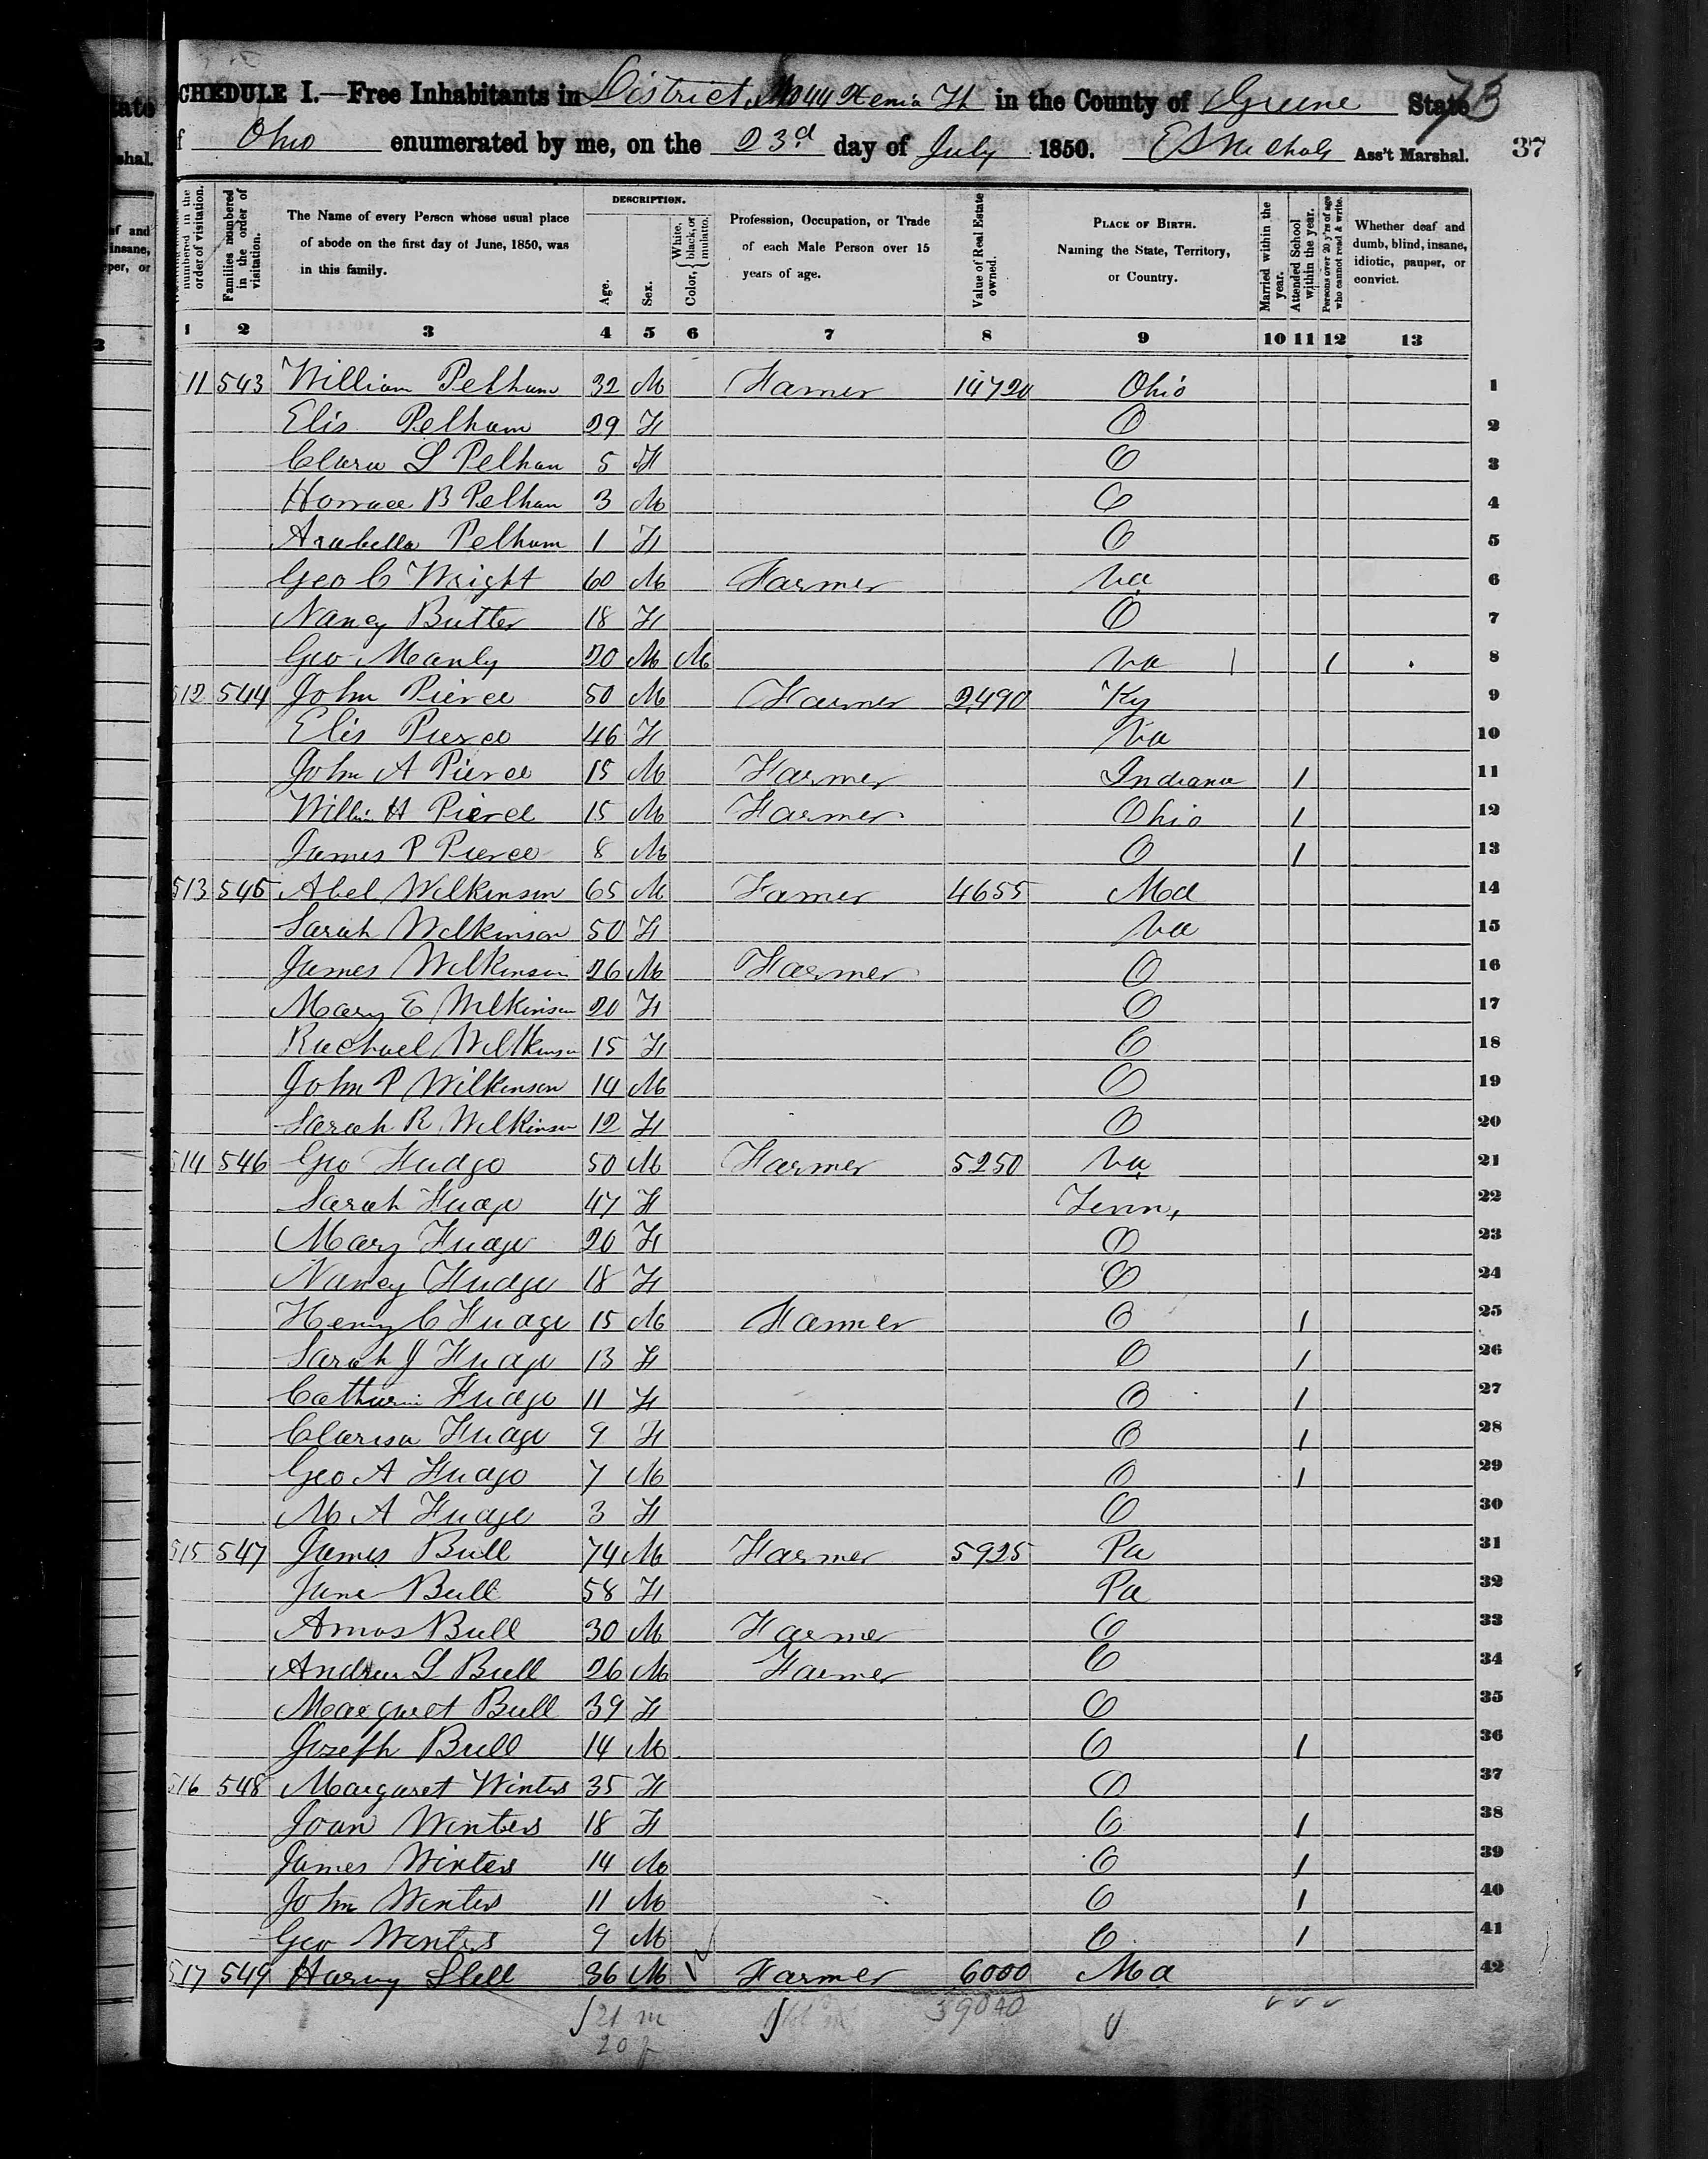 SCHEDULE I.—Free Inhabitants in District No 44 Xenia Th in the County of Greene State 73
of Ohio enumerated by me, on the 23d day of July 1850. E S Nichols Ass't Marshal. 37
numbered in the order of visitation.
Families numbered in the order of visitation.
The Name of every Person whose usual place of abode on the first day of June, 1850, was in this family.
DESCRIPTION.
Age.
Sex.
Color, White, black, or mulatto.
Profession, Occupation, or Trade of each Male Person over 15 years of age.
Value of Real Estate owned.
PLACE OF BIRTH. Naming the State, Territory, or Country.
Married within the year.
Attended School within the year.
Persons over 20 y'rs of age who cannot read & write.
Whether deaf and dumb, blind, insane, idiotic, pauper, or convict.
1 2 3 4 5 6 7 8 9 10 11 12 13
11 543 William Pelham 32 M Farmer 14720 Ohio 1
Elis Pelham 29 F O 2
Clara L Pelham 5 F O 3
Horrace B Pelham 3 M O 4
Arabella Pelham 1 F O 5
Geo C Wright 60 M Farmer Va 6
Nancy Butter 18 F O 7
Geo Manly 20 M M Va 1 8
512 544 John Pierce 50 M Farmer 2490 Ky 9
Elis Pierce 46 F Va 10
John A Pierce 15 M Farmer Indiana 1 11
Willm H Pierce 15 M Farmer Ohio 1 12
James P Pierce 8 M O 1 13
513 545 Abel Wilkinson 65 M Farmer 4655 Md 14
Sarah Wilkinson 50 F Va 15
James Wilkinson 26 M Farmer O 16
Mary E Wilkinson 20 F O 17
Rachael Wilkinson 15 F O 18
John P Wilkinson 14 M O 19
Sarah R Wilkinson 12 F O 20
514 546 Geo Fudge 50 M Farmer 5250 Va 21
Sarah Fudge 47 F Tenn, 22
Mary Fudge 20 F O 23
Nancy Fudge 18 F O 24
Henry C Fudge 15 M Farmer O 1 25
Sarah J Fudge 13 F O 1 26
Catharin Fudge 11 F O 1 27
Clarisa Fudge 9 F O 1 28
Geo A Fudge 7 M O 1 29
M A Fudge 3 F O 30
515 547 James Bull 74 M Farmer 5925 Pa 31
Jane Bull 58 F Pa 32
Amos Bull 30 M Farmer O 33
Andrew L Bull 26 M Farmer O 34
Margaret Bull 39 F O 35
Joseph Bull 14 M O 1 36
516 548 Margaret Winters 35 F O 37
Joan Winters 18 F O 1 38
James Winters 14 M O 1 39
John Winters 11 M O 1 40
Geo Winters 9 M O 1 41
517 549 Harvy Slell 36 M Farmer 6000 Md 42
21 m 39040
20 f